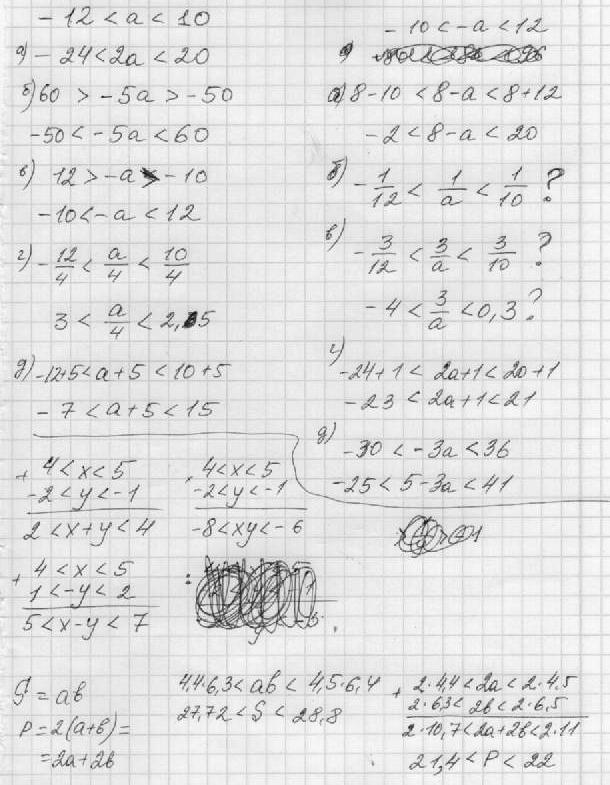 -12 < a < 10
а) -24 < 2a < 20
б) 60 > -5a > -50
-50 < -5a < 60
в) 12 > -a > -10
-10 < -a < 12
г) -12/4 < a/4 < 10/4
3 < a/4 < 2,5
д) -12+5 < a+5 < 10+5
-7 < a+5 < 15
-10 < -a < 12
а) 8-10 < 8-a < 8+12
-2 < 8-a < 20
б) -1/12 < 1/a < 1/10 ?
в) -3/12 < 3/a < 3/10 ?
-4 < 3/a < 0,3 ?
г) -24+1 < 2a+1 < 20+1
-23 < 2a+1 < 21
д) -30 < -3a < 36
-25 < 5-3a < 41
+ 4 < x < 5
-2 < y < -1
2 < x+y < 4
· 4 < x < 5
-2 < y < -1
-8 < xy < -6
+ 4 < x < 5
1 < -y < 2
5 < x-y < 7
:
S = ab
P = 2(a+b) =
= 2a+2b
4,4·6,3 < ab < 4,5·6,4
27,72 < S < 28,8
+ 2·4,4 < 2a < 2·4,5
2·6,3 < 2b < 2·6,5
2·10,7 < 2a+2b < 2·11
21,4 < P < 22